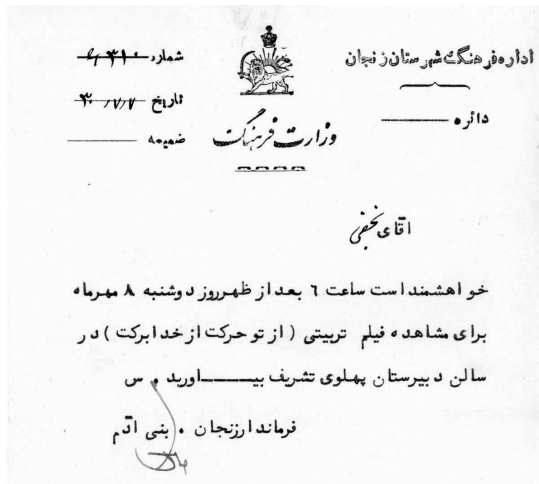 اداره فرهنگ شهرستان زنجان
دائره
وزارت فرهنگ
شماره
تاریخ ۳۰/۷/۷
ضمیمه
آقای نجفی
خواهشمند است ساعت ٦ بعد از ظهر روز دوشنبه ۸ مهرماه
برای مشاهده فیلم تربیتی ( از تو حرکت از خدا برکت ) در
سالن دبیرستان پهلوی تشریف بیـــــاورید . س
فرماندار زنجان . بنی آدم